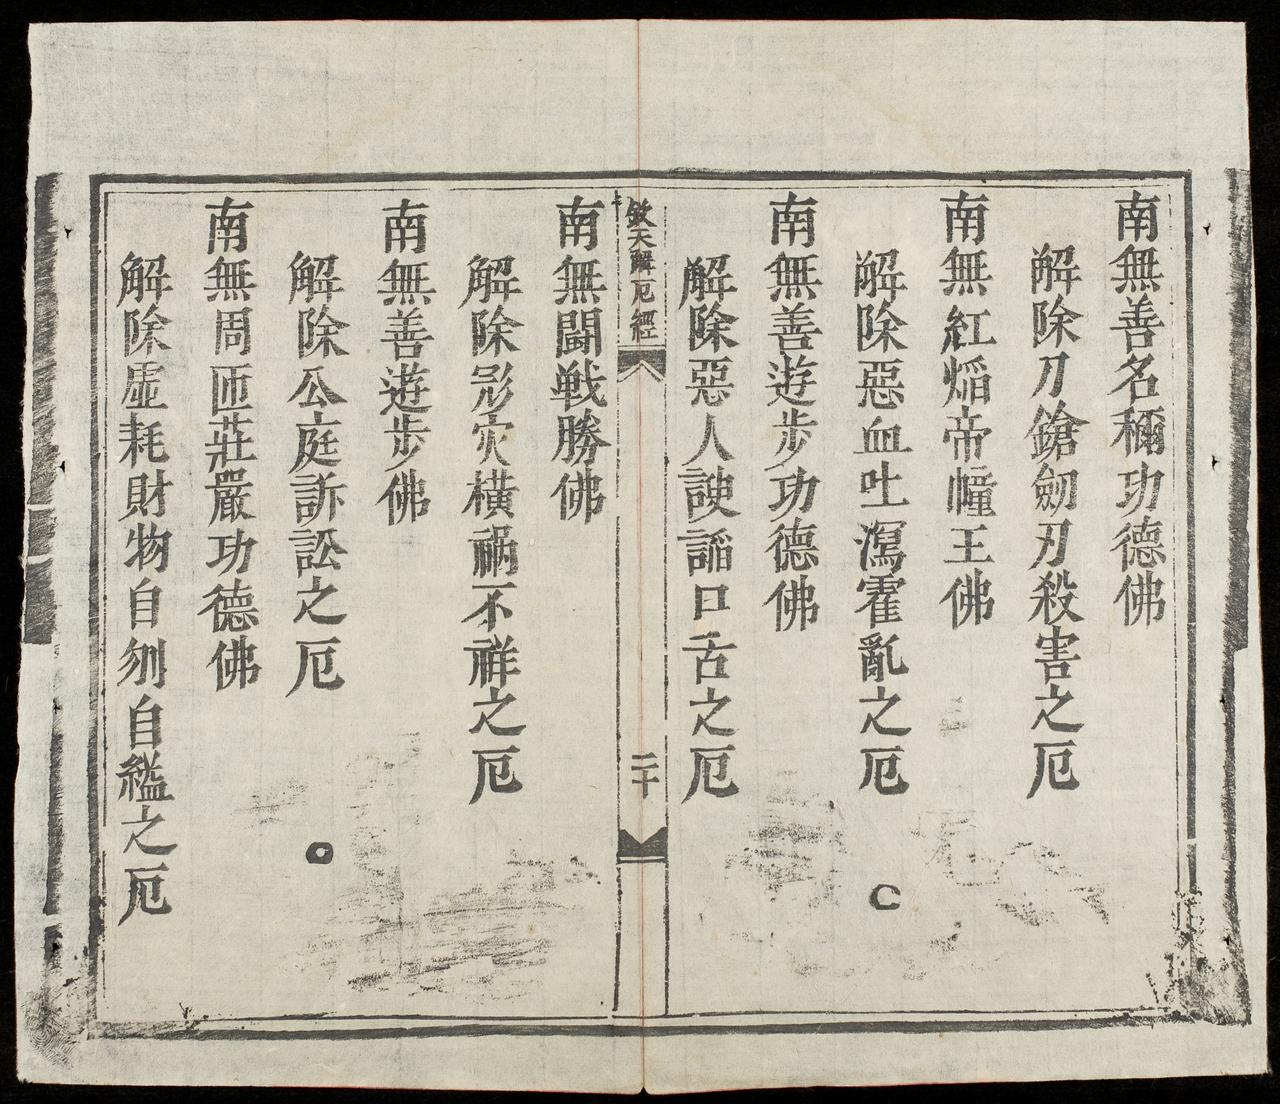 南無善名稱功德佛
解除刀鎗劒刃殺害之厄
南無紅焰帝幢王佛
解除惡血吐瀉霍亂之厄
南無善遊步功德佛
解除惡人諛謟口舌之厄
天解厄經
二十
南無鬪戦勝佛
解除灾橫禍不祥之厄
南無善遊步佛
解除公庭訴訟之厄
南無周匝莊嚴功德佛
解除虛耗財物自刎自縊之厄